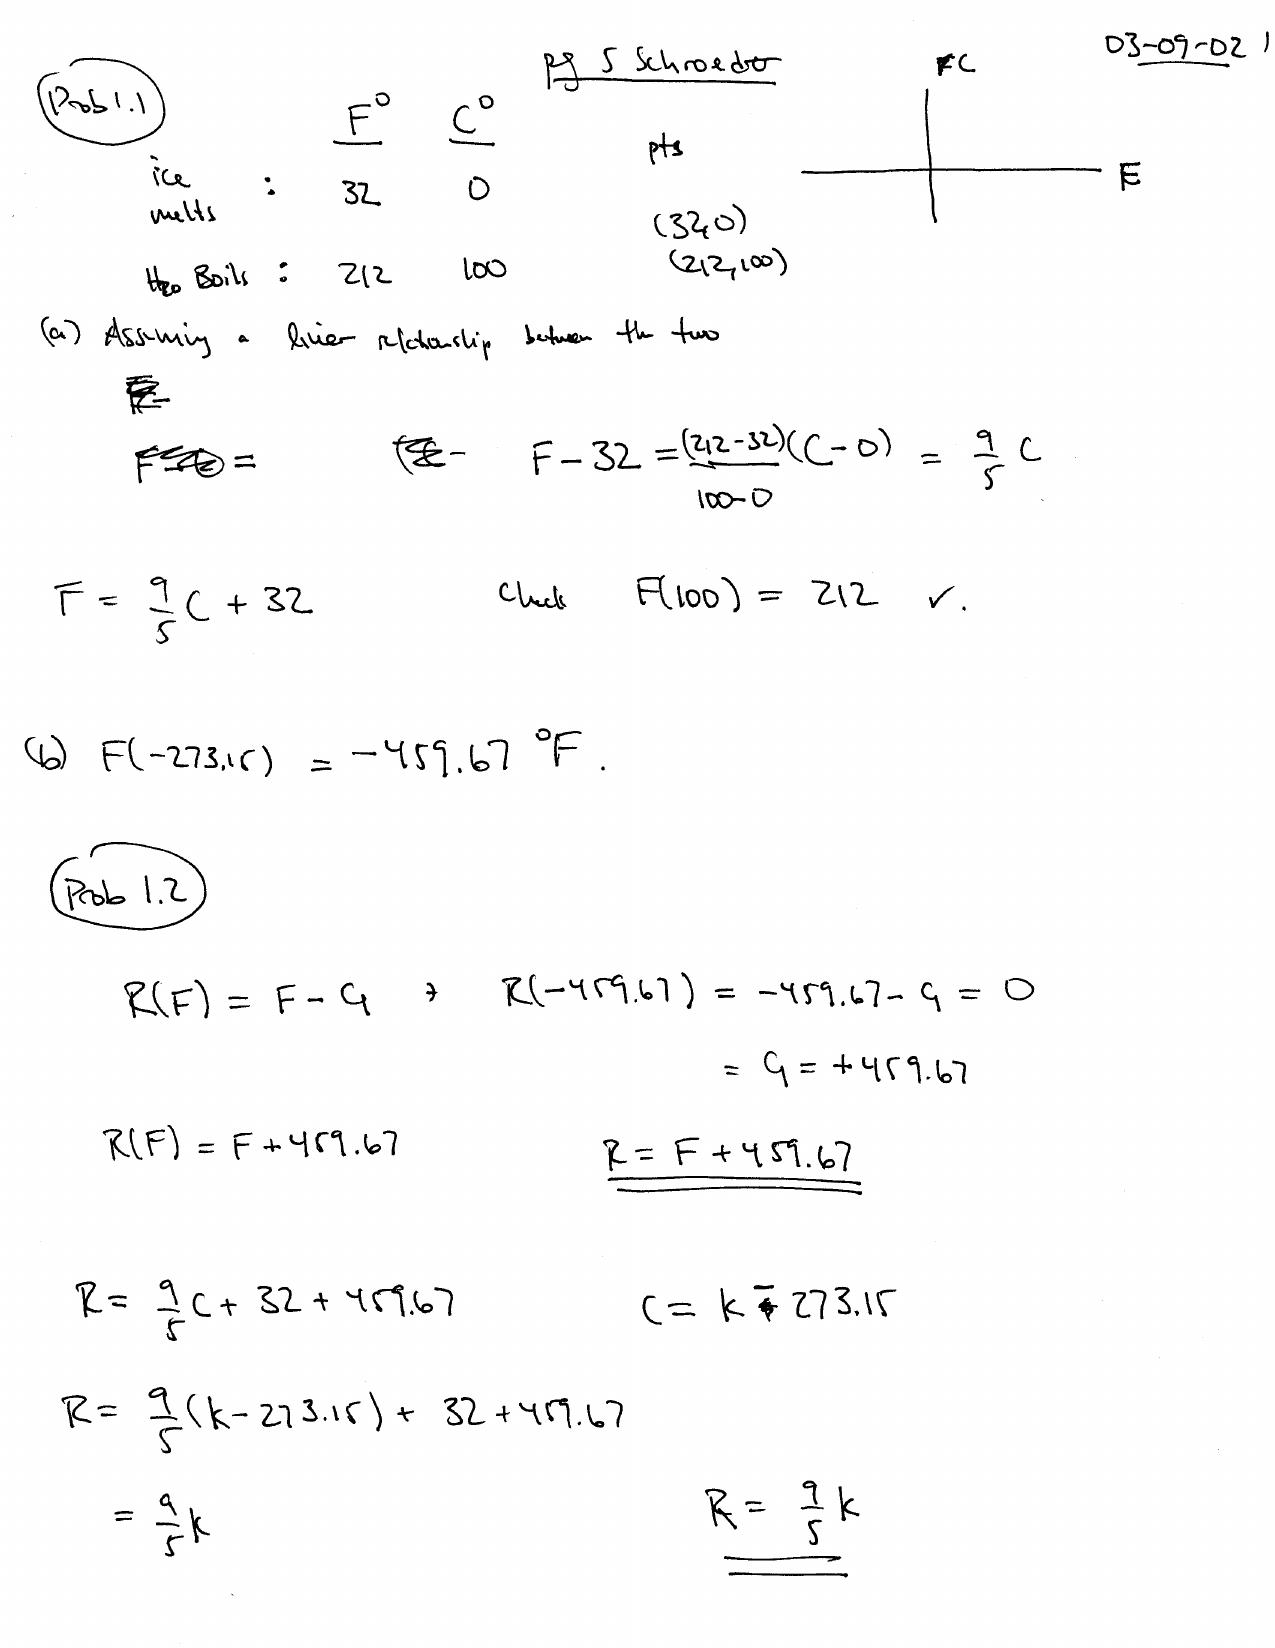 pg 5 Schroeder
03-09-02 1
Prob 1.1
F° C°
pts
C
F
ice melts : 32 0
(32,0)
H2O Boils : 212 100
(212,100)
(a) Assuming a linier relationship between the two
F-32 = (212-32)/(100-0) (C-0) = 9/5 C
F = 9/5 C + 32 Check F(100) = 212 ✓.
(b) F(-273.15) = -459.67 °F.
Prob 1.2
R(F) = F - G → R(-459.67) = -459.67 - G = 0
= G = +459.67
R(F) = F + 459.67 R = F + 459.67
R = 9/5 C + 32 + 459.67 C = K - 273.15
R = 9/5 (K - 273.15) + 32 + 459.67
= 9/5 K R = 9/5 K